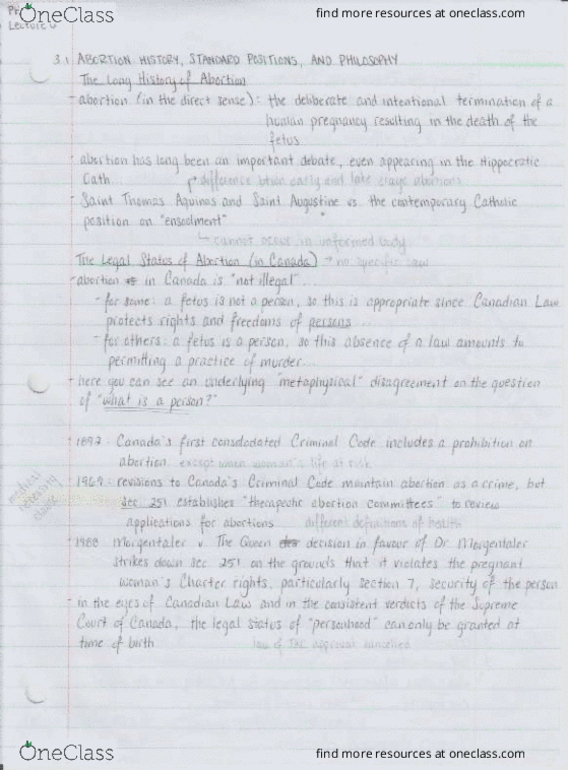 OneClass
find more resources at oneclass.com
Lecture 6
3.1 ABORTION HISTORY, STANDARD POSITIONS, AND PHILOSOPHY
The Long History of Abortion
- abortion (in the direct sense): the deliberate and intentional termination of a
human pregnancy resulting in the death of the
fetus
- abortion has long been an important debate, even appearing in the Hippocratic
Oath...
difference btwn early and late stage abortions
- Saint Thomas Aquinas and Saint Augustine vs. the contemporary Catholic
position on "ensoulment"
cannot occur in unformed body
The Legal Status of Abortion (in Canada) → no specific law
- abortion in Canada is "not illegal"...
- for some: a fetus is not a person, so this is appropriate since Canadian Law
protects rights and freedoms of persons...
- for others: a fetus is a person, so this absence of a law amounts to
permitting a practice of murder...
- here you can see an underlying "metaphysical" disagreement on the question
of "what is a person?"
- 1892: Canada's first consolodated Criminal Code includes a prohibition on
abortion except when woman's life at risk
- 1969: revisions to Canada's Criminal Code maintain abortion as a crime, but
sec 251 establishes "therapeutic abortion committees" to review
applications for abortions different definitions of health
- 1988 Morgentaler v. The Queen decision in favour of Dr. Morgentaler
strikes down sec 251 on the grounds that it violates the pregnant
woman's Charter rights, particularly section 7, security of the person
- in the eyes of Canadian Law and in the consistent verdicts of the Supreme
Court of Canada, the legal status of "personhood" can only be granted at
time of birth
OneClass
find more resources at oneclass.com